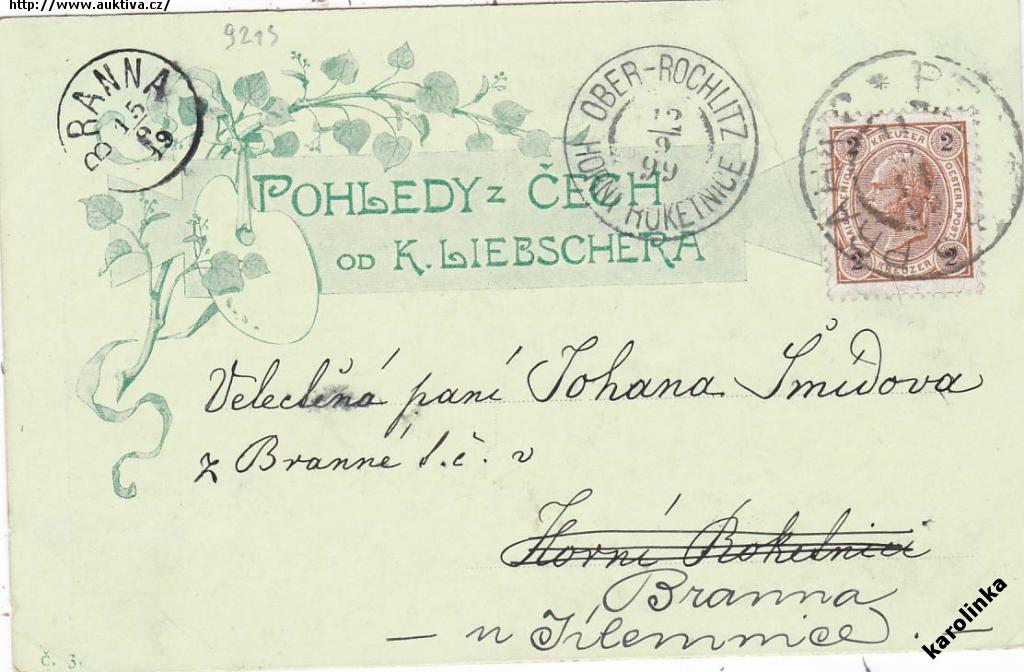 http://www.auktiva.cz/
9215
BRANNA
15
99
OBER-ROCHLITZ
13
99
HORNÍ ROKETNICE
2 KREUZER 2
OESTERR. POST
2 KREUZER 2
POHLEDY z ČECH
OD K. LIEBSCHERA
Velectěná paní Johana Šmídova
z Branné č. č. v
Horní Roketnici
Branna
– u Jilemnice. –
č. 3.
karolinka